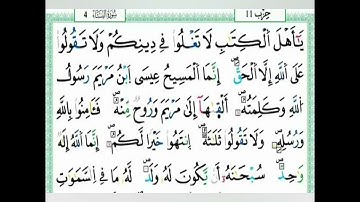 حزب 11 سورة النساء 4
يَٰٓأَهْلَ ٱلْكِتَٰبِ لَا تَغْلُوا۟ فِى دِينِكُمْ وَلَا تَقُولُوا۟
عَلَى ٱللَّهِ إِلَّا ٱلْحَقَّ إِنَّمَا ٱلْمَسِيحُ عِيسَى ٱبْنُ مَرْيَمَ رَسُولُ
ٱللَّهِ وَكَلِمَتُهُۥٓ أَلْقَىٰهَآ إِلَىٰ مَرْيَمَ وَرُوحٌ مِّنْهُ فَـَٔامِنُوا۟ بِٱللَّهِ
وَرُسُلِهِۦ وَلَا تَقُولُوا۟ ثَلَٰثَةٌ ٱنتَهُوا۟ خَيْرًا لَّكُمْ إِنَّمَا ٱللَّهُ إِلَٰهٌ
وَٰحِدٌ سُبْحَٰنَهُۥٓ أَن يَكُونَ لَهُۥ وَلَدٌ لَّهُۥ مَا فِى ٱلسَّمَٰوَٰتِ